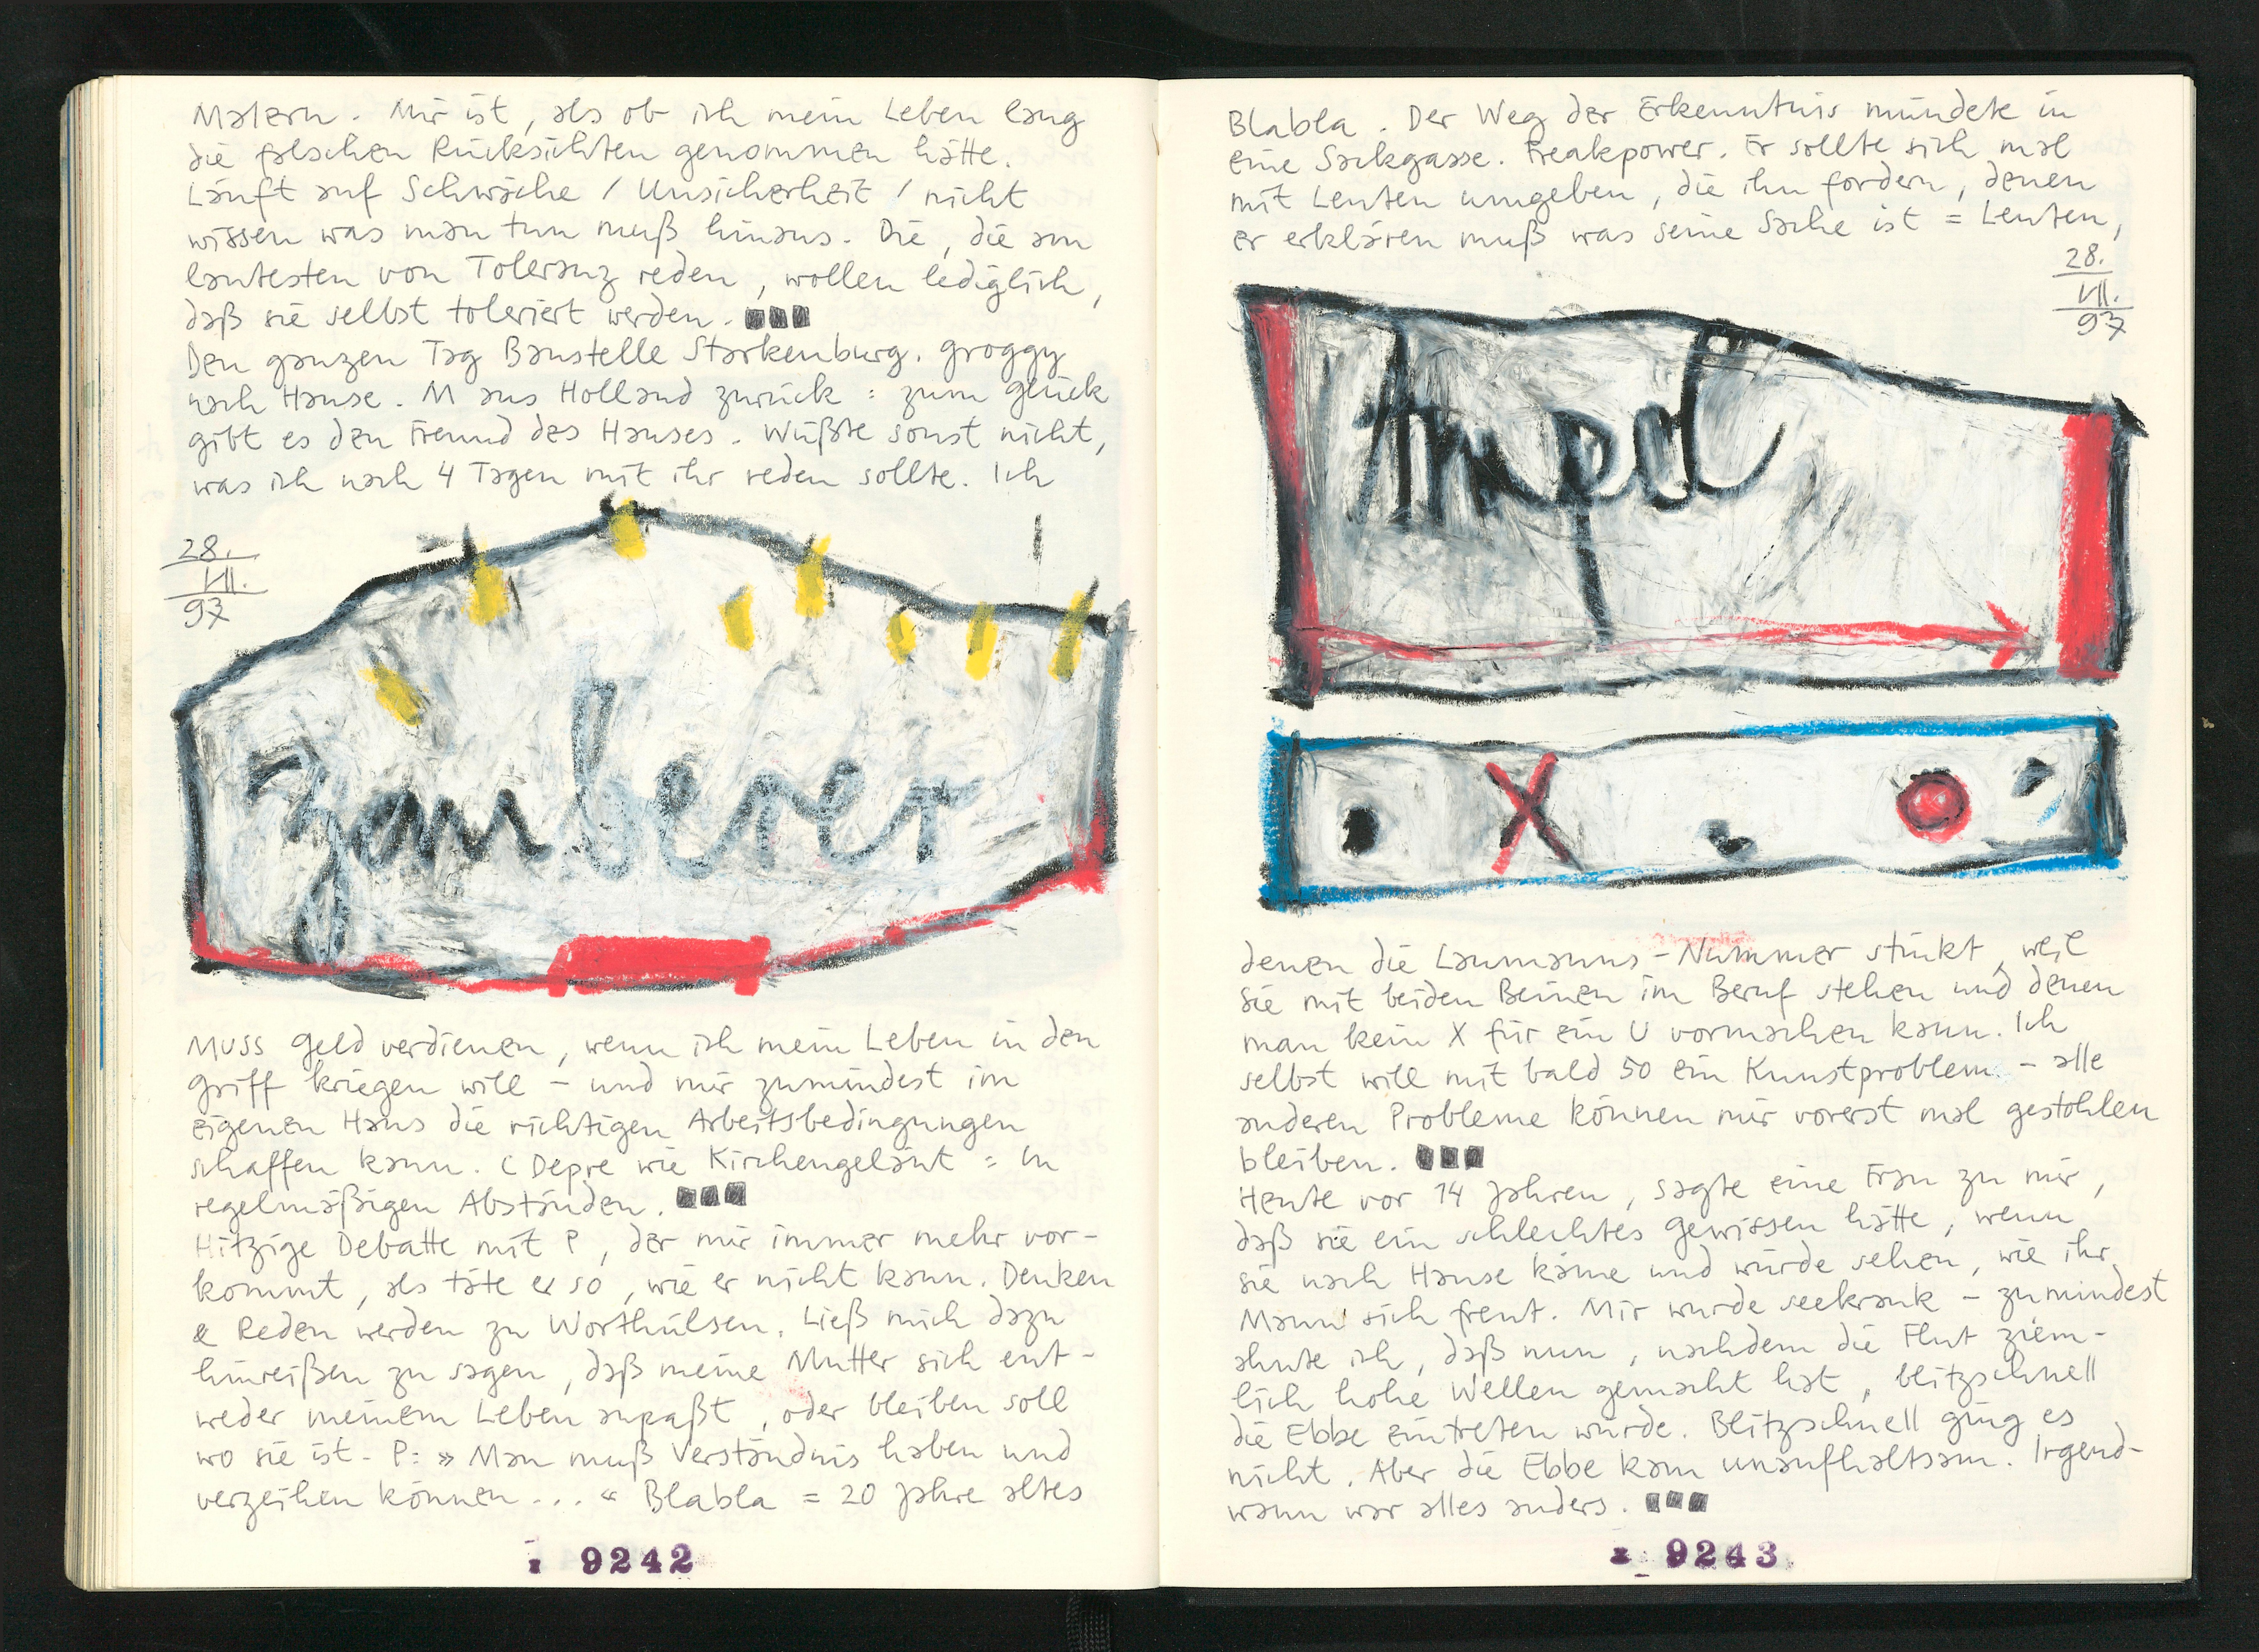 Malern. Mir ist, als ob ich mein Leben lang
die falschen Rücksichten genommen hätte.
Läuft auf Schwäche / Unsicherheit / nicht
wissen was man tun muß hinaus. Die, die am
lautesten von Toleranz reden, wollen lediglich,
daß sie selbst toleriert werden.
Den ganzen Tag Baustelle Starkenburg. Groggy
nach Hause. M aus Holland zurück: zum Glück
gibt es den Freund des Hauses. Wüßte sonst nicht,
was ich nach 4 Tagen mit ihr reden sollte. Ich
28.
VII.
97
Zauberer
MUSS Geld verdienen, wenn ich mein Leben in den
Griff kriegen will – und mir zumindest im
eigenen Haus die richtigen Arbeitsbedingungen
schaffen kann. (Depre wie Kirchengeläut = in
regelmäßigen Abständen.
Hitzige Debatte mit P, der mir immer mehr vor-
kommt, als täte er so, wie er nicht kann. Denken
& Reden werden zu Worthülsen. Ließ mich dazu
hinreißen zu sagen, daß meine Mutter sich ent-
weder meinem Leben anpaßt, oder bleiben soll
wo sie ist. P: »Man muß Verständnis haben und
verzeihen können...« Blabla = 20 Jahre altes
9242
Blabla. Der Weg der Erkenntnis mündete in
eine Sackgasse. Freakpower. Er sollte sich mal
mit Leuten umgeben, die ihn fordern, denen
er erklären muß was seine Sache ist = Leuten,
28.
VII.
97
Ampel
X
denen die Laumanns-Nummer stinkt, weil
sie mit beiden Beinen im Beruf stehen und denen
man kein X für ein U vormachen kann. Ich
selbst will mit bald 50 ein Kunstproblem – alle
anderen Probleme können mir vorerst mal gestohlen
bleiben.
Heute vor 14 Jahren, sagte eine Frau zu mir,
daß sie ein schlechtes Gewissen hätte, wenn
sie nach Hause käme und würde sehen, wie ihr
Mann sich freut. Mir wurde seekrank – zumindest
ahnte ich, daß nun, nachdem die Flut ziem-
lich hohe Wellen gemacht hat, blitzschnell
die Ebbe eintreten würde. Blitzschnell ging es
nicht. Aber die Ebbe kam unaufhaltsam. Irgend-
wann war alles anders.
9243